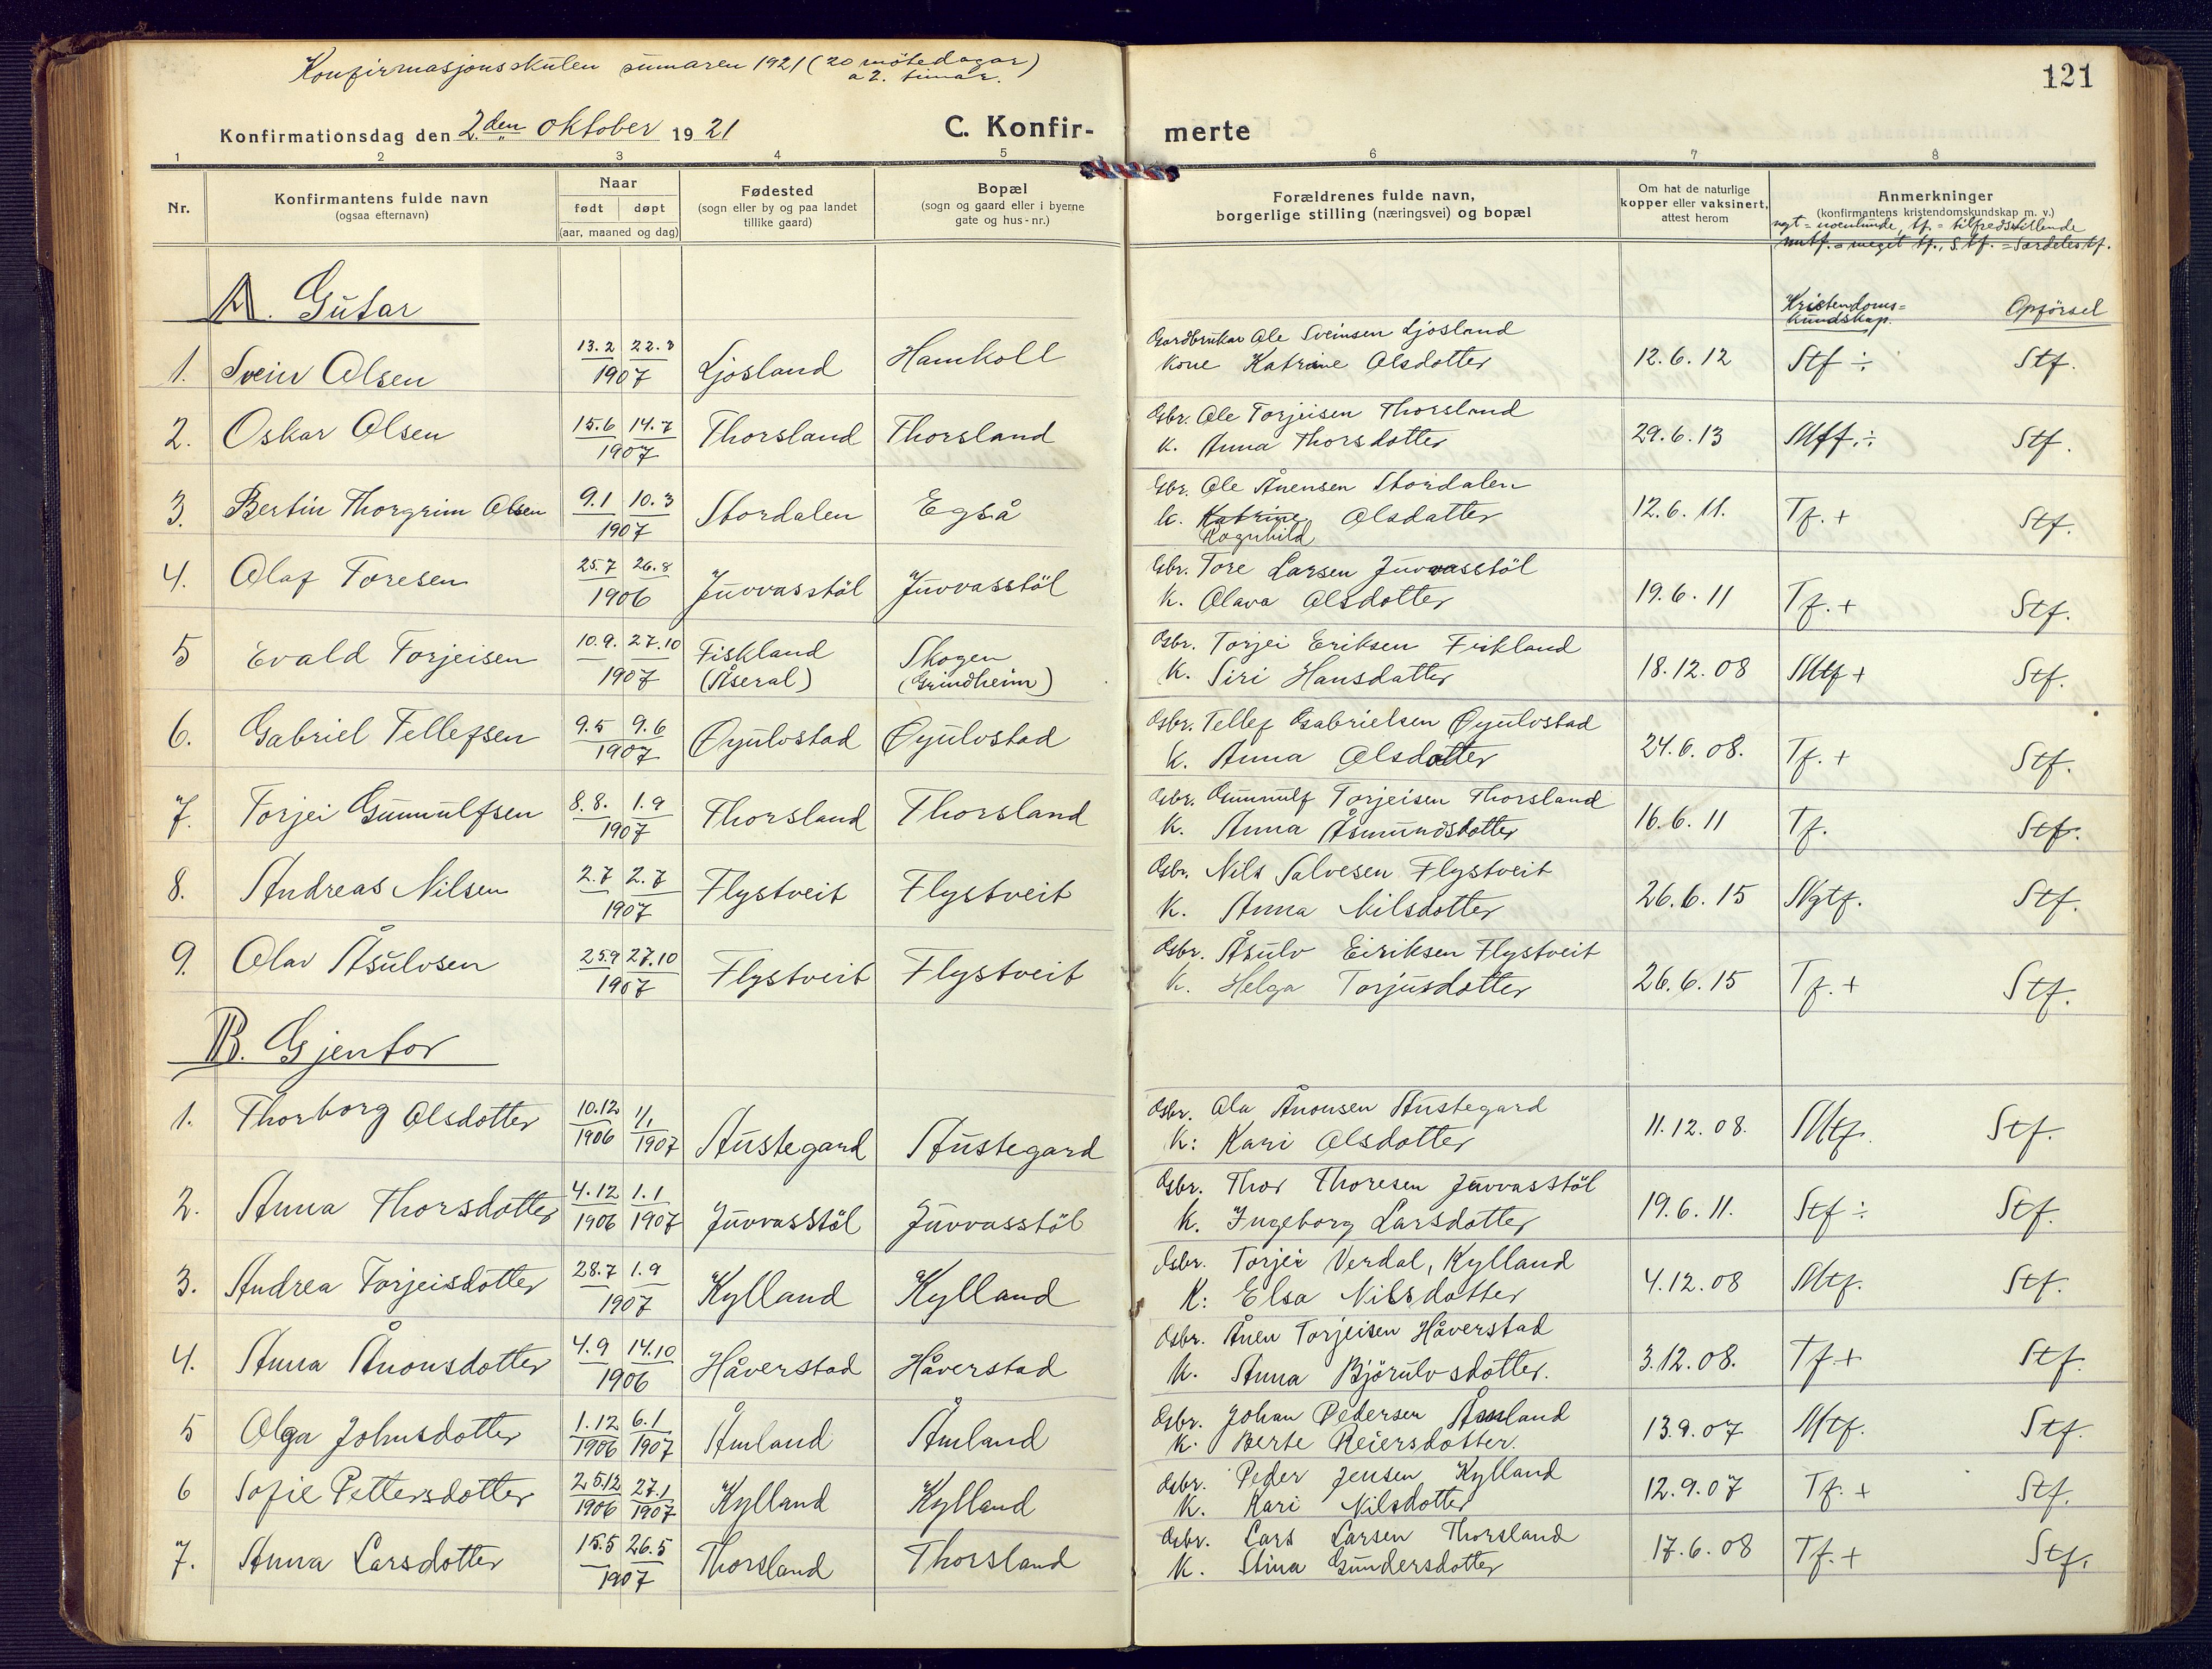 Konfirmasjonsskulen sumaren 1921 (20 møtedagar)
a 2. timar.
121
Konfirmationsdag den 2.den oktober 1921
C. Konfir-merte
1 2 3 4 5 6 7 8
Nr. | Konfirmantens fulde navn (ogsaa efternavn) | Naar født døpt (aar, maaned og dag) | Fødested (sogn eller by og paa landet tillike gaard) | Bopæl (sogn og gaard eller i byerne gate og hus-nr.) | Forældrenes fulde navn, borgerlige stilling (næringsvei) og bopæl | Om hat de naturlige kopper eller vaksinert, attest herom | Anmerkninger (konfirmantens kristendomskundskap m. v.)
ngt = noenlunde, tf. = tilfredsstillende
mtf. = meget tf., S.tf. = Særdeles tf.
A. Gutar
Kristendoms=kundskap. Opførsel
1. Svein Olsen 13.2 22.3 1907 Ljosland Hamkoll Gardbrukar Ole Sveinsen Ljosland 12.6.12 Stf ÷ Stf.
Kone Katrine Olsdotter
2. Oskar Olsen 15.6 14.7 1907 Thorsland Thorsland Gbr. Ole Torjeisen Thorsland 29.6.13 Mtf. ÷ Stf.
K. Anna Thorsdotter
3. Bertin Thorgrim Olsen 9.1 10.3 1907 Stordalen Egså Gbr. Ole Ånensen Stordalen 12.6.11. Tf. + Stf.
K. Katrine Olsdatter
Ragnhild
4. Olaf Toresen 25.7 26.8 1906 Juvvasstöl Juvvasstöl Gbr. Tore Larsen Juvvasstöl 19.6.11 Tf. + Stf.
K. Olava Olsdotter
5 Evald Torjeisen 10.9. 27.10 1907 Fiskland (Åseral) Skogen (Grindheim) Gbr. Torjei Eriksen Fiskland 18.12.08 Mtf + Stf.
K. Siri Hansdatter
6. Gabriel Tellefsen 9.5 9.6 1907 Øyulvstad Øyulvstad Gbr. Tellef Gabrielsen Øyulvstad 24.6.08. Tf. + Stf.
K. Anna Olsdotter
7. Torjei Gunnulfsen 8.8. 1.9 1907 Thorsland Thorsland Gbr. Gunnulf Torjeisen Thorsland 16.6.11 Tf. Stf.
K. Anna Åsmundsdotter
8. Andreas Nilsen 2.7 2.7 1907 Flystveit Flystveit Gbr. Nils Salvesen Flystveit 26.6.15 Ngtf. Stf.
K. Anna Nilsdotter
9. Olav Åsulvsen 25.9 27.10 1907 Flystveit Flystveit Gbr. Åsulv Eiriksen Flystveit 26.6.15 Tf. + Stf.
K. Helga Torjusdotter
B. Gjentor
1. Thorborg Olsdotter 10.12 1906 1/1 1907 Austegard Austegard Gbr. Ola Ånonsen Austegard 11.12.08. Mtf. Stf.
K: Kari Olsdotter
2. Anna Thorsdotter 4.12 1906 1.1 1907 Juvvasstöl Juvvasstöl Gbr. Thor Thoresen Juvvasstöl 19.6.11. Stf ÷ Stf.
K. Ingeborg Larsdotter
3. Andrea Torjeisdotter 28.7 1.9 1907 Kylland Kylland Gbr. Torjei Verdal, Kylland 4.12.08 Mtf. Stf.
K: Elsa Nilsdotter
4. Anna Ånonsdotter 4.9 14.10 1906 Håverstad Håverstad Gbr. Ånen Torjeisen Håverstad 3.12.08. Tf + Stf.
K. Anna Bjørulvsdotter.
5 Olga Johnsdotter 1.12 1906 6.1 1907 Åmland Åmland Gbr. Johan Pedersen Åmland 13.9.07 Mtf. Stf.
K. Berte Reiersdotter.
6 Sofie Pettersdotter 25.12 1906 27.1 1907 Kylland Kylland Gbr. Peder Jensen Kylland 12.9.07 Tf. + Stf.
K. Kari Nilsdotter
7. Anna Larsdotter 15.5 26.5 1907 Thorsland Thorsland Gbr. Lars Larsen Thorsland 17.6.08 Tf. + Stf.
K. Stina Gundersdotter